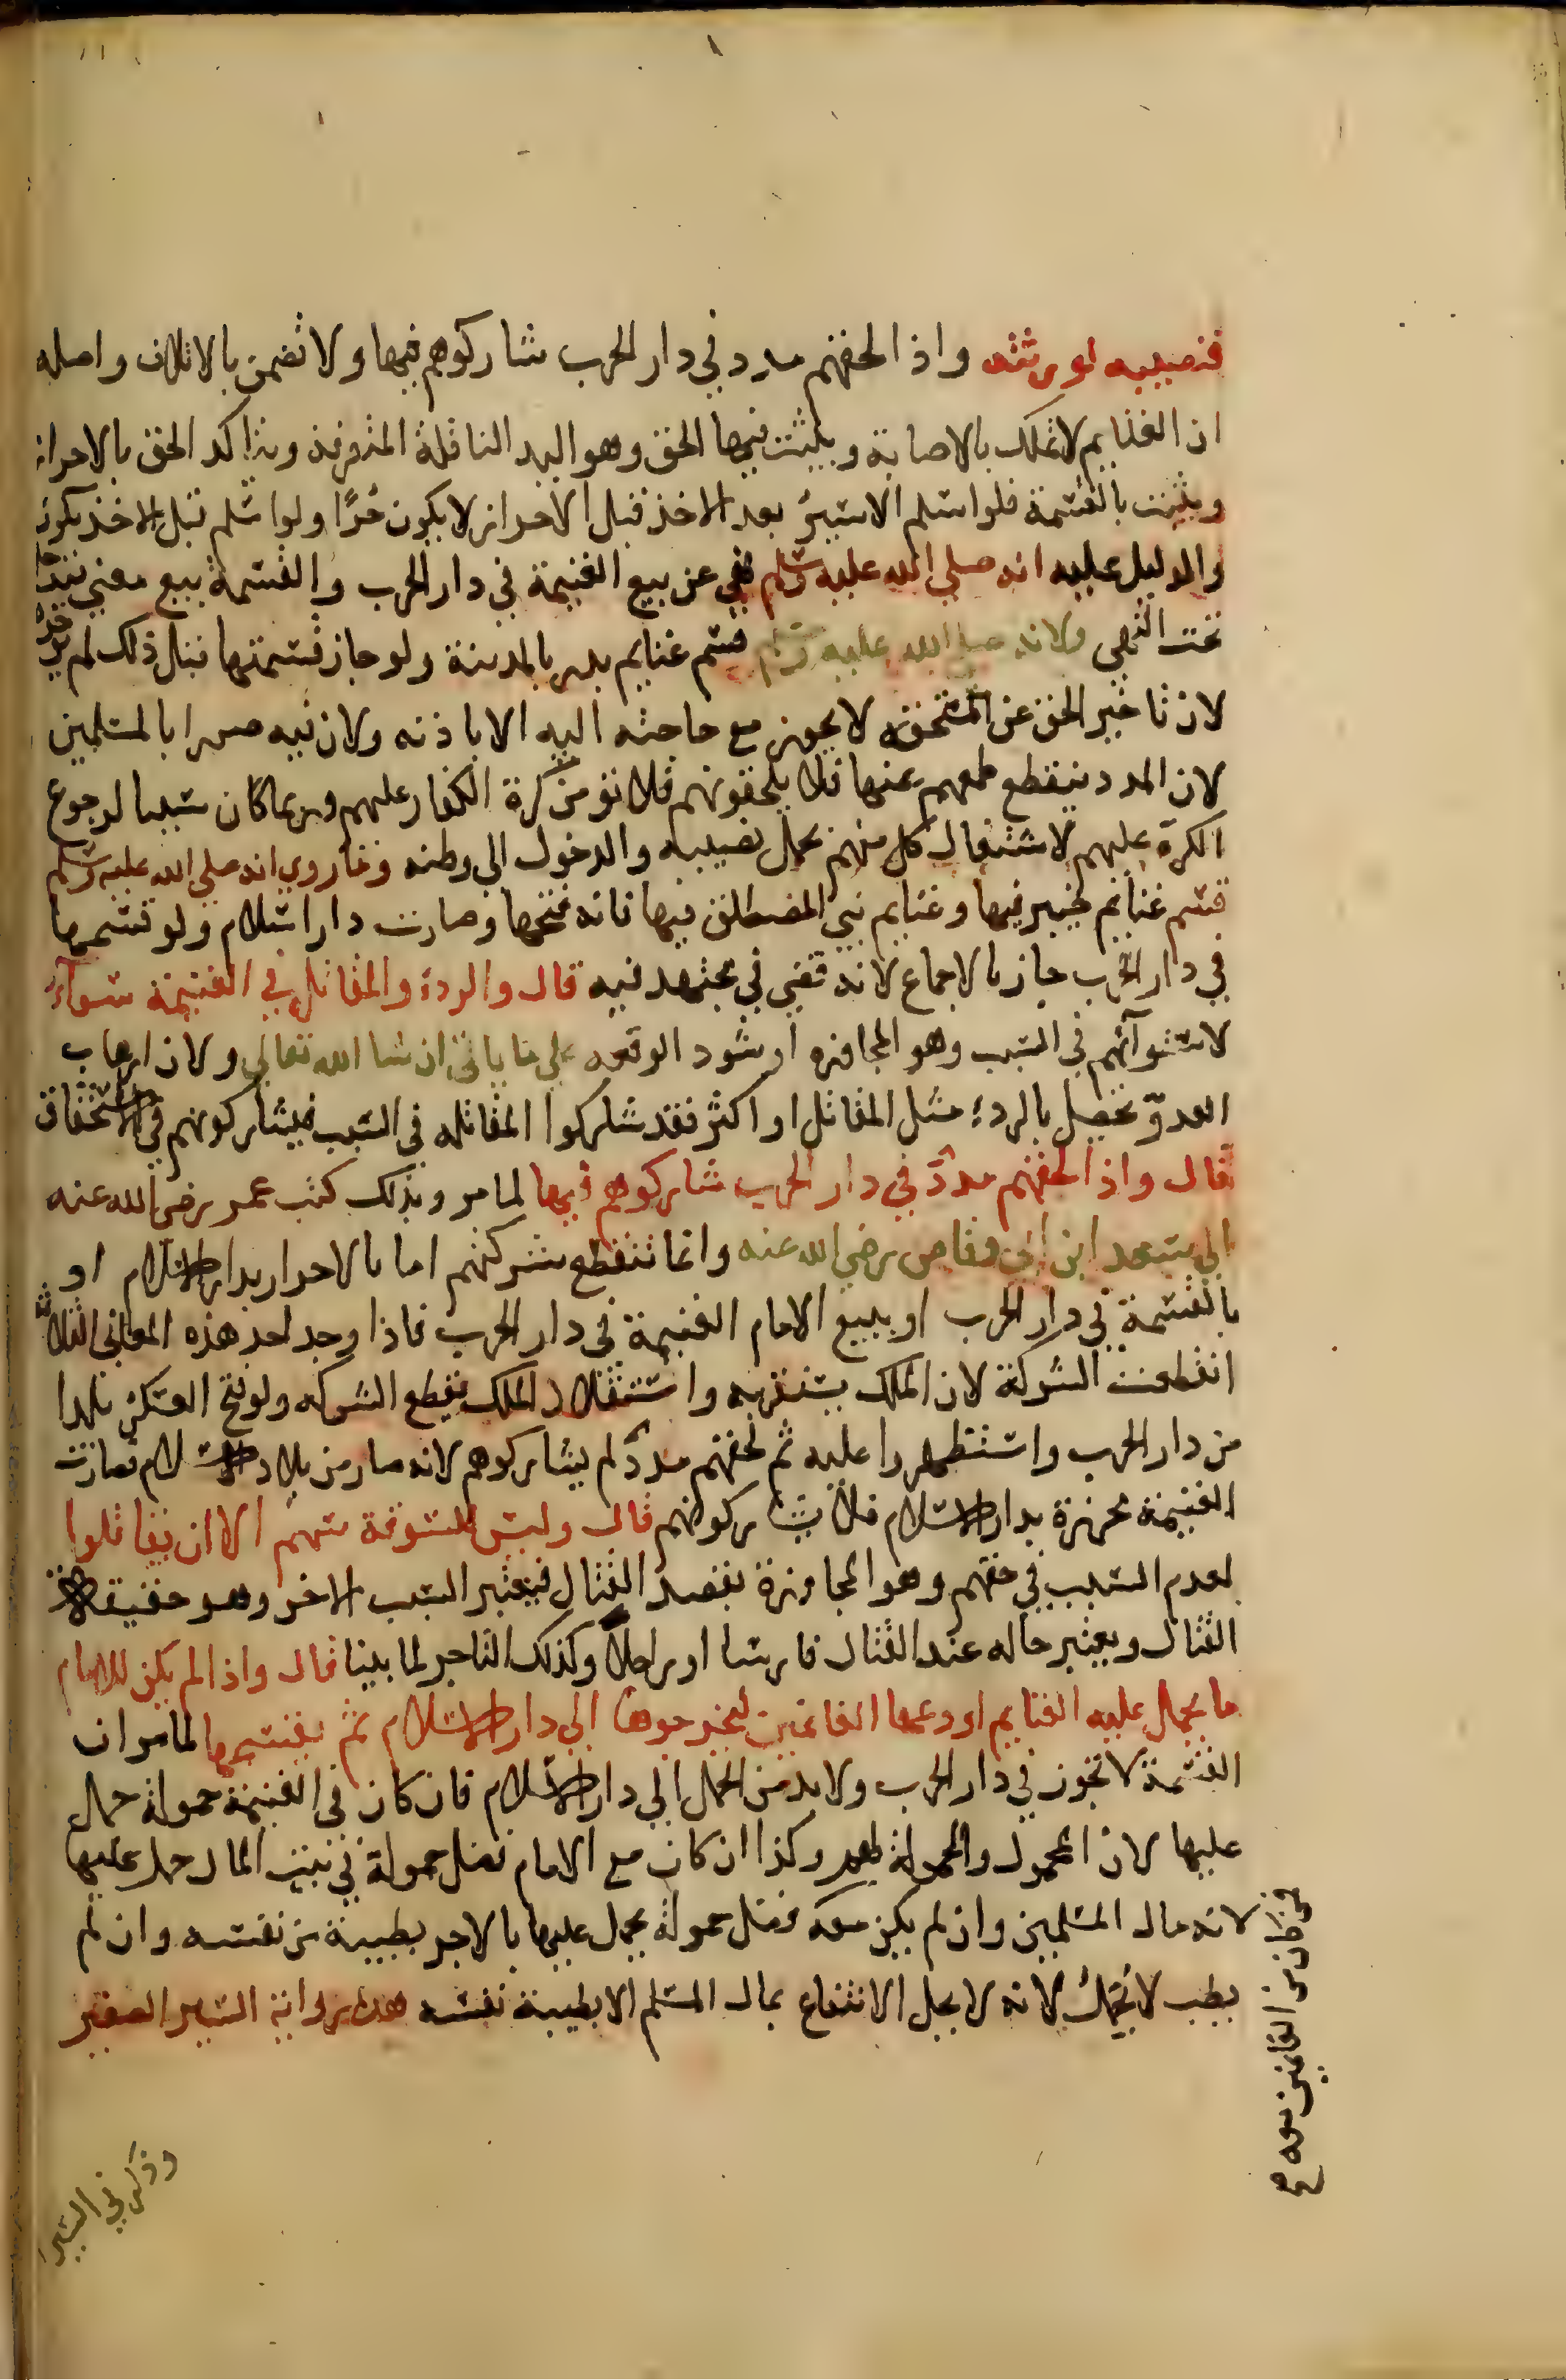 فنصيبه لورثته واذا لحقهم مدد في دار الحرب شاركوهم فيها ولا تضمن بالاتلاف واصله
ان الغنايم لا تملك بالاصابة ويثبت فيها الحق وهو اليد الناقلة المتصرفة ويتاكد الحق بالاحراز
ويثبت بالقسمة فلو اسلم الاسير بعد الاخذ قبل الاحراز لا يكون حُرًّا ولو اسلم قبل الاخذ يكون
والدليل عليه انه صلي الله عليه وسلم نهي عن بيع الغنيمة في دار الحرب والقسمة بيع معني فيدخل
تحت النهي ولانه صلي الله عليه وسلم قسم غنايم بدر بالمدينة ولو جاز قسمتها قبل ذلك لم يوخره
لان تاخير الحق عن مستحقه لا يجوز مع حاجته اليه الا باذنه ولان فيه ضررا بالمسلمين
لان المدد ينقطع طمعهم عنها فلا يلحقونهم فلا نؤمن كرة الكفار عليهم وربما كان سببا لرجوع
الكرة عليهم لاشتغال كل منهم بحمل نصيبه والدخول الي وطنه وما روي انه صلي الله عليه وسلم
قسم غنايم خيبر فيها وغنايم بني المصطلق فيها فانه فتحها وصارت دار اسلام ولو قسمها
في دار الحرب جاز بالاجماع لانه قضي في مجتهد فيه قال والردء والمقاتل في الغنيمة سواءٌ
لاستوآئهم في السبب وهو المجاوزه او شهود الوقعه علي ما ياتي ان شا الله تعالي ولان ارهاب
العدوّ تحصل بالردء مثل المقاتل او اكثر فقد شاركوا المقاتله في السبب فيشاركونهم في الاستحقاق
قال واذا لحقهم مددٌ في دار الحرب شاركوهم فيها لما مر وبذلك كتب عمر رضي الله عنه
الي سعد ابن ابي وقاص رضي الله عنه وانما تنقطع شركتهم اما بالاحراز بدار الاسلام او
بالقسمة في دار الحرب او ببيع الامام الغنيمة في دار الحرب فاذا وجد احد هذه المعاني الثلاثة
انقطعت الشركة لان الملك يستقر به واستقلال الملك يقطع الشركه ولو فتح العسكر بلدا
من دار الحرب واستظهروا عليه ثم لحقهم مددٌ لم يشاركوهم لانه صار من بلاد الاسلام فصارت
الغنيمة محرزة بدار الاسلام فلا يشاركونهم قال وليس للسوقة سهم الا ان يقاتلوا
لعدم السبب في حقهم وهو المجاوزة بقصد القتال فيعتبر السبب الاخر وهو حقيقة
القتال ويعتبر حاله عند القتال فارسا او راجلًا وكذلك التاجر لما بينا قال واذا لم يكن للامام
ما يحمل عليه الغنايم اودعها الغانمين ليخرجوها الي دار الاسلام ثم يقسمها لما مر ان
القسمة لا تجوز في دار الحرب ولا بد من الحمل الي دار الاسلام فان كان في الغنيمة حمولة حمل
عليها لان المحمول والحمولة لهم وكذا ان كان مع الامام فضل حمولة في بيت المال حمل عليها
لانه مال المسلمين وان لم يكن معه فضل حمولة يحمل عليها بالاجر بطيبة من نفسه وان لم
يطب لا يحمل لانه لا يحل الانتفاع بمال المسلم الا بطيبة نفسه هذه رواية السير الصغير
من كان من الغانمين معه
وذكر في السير